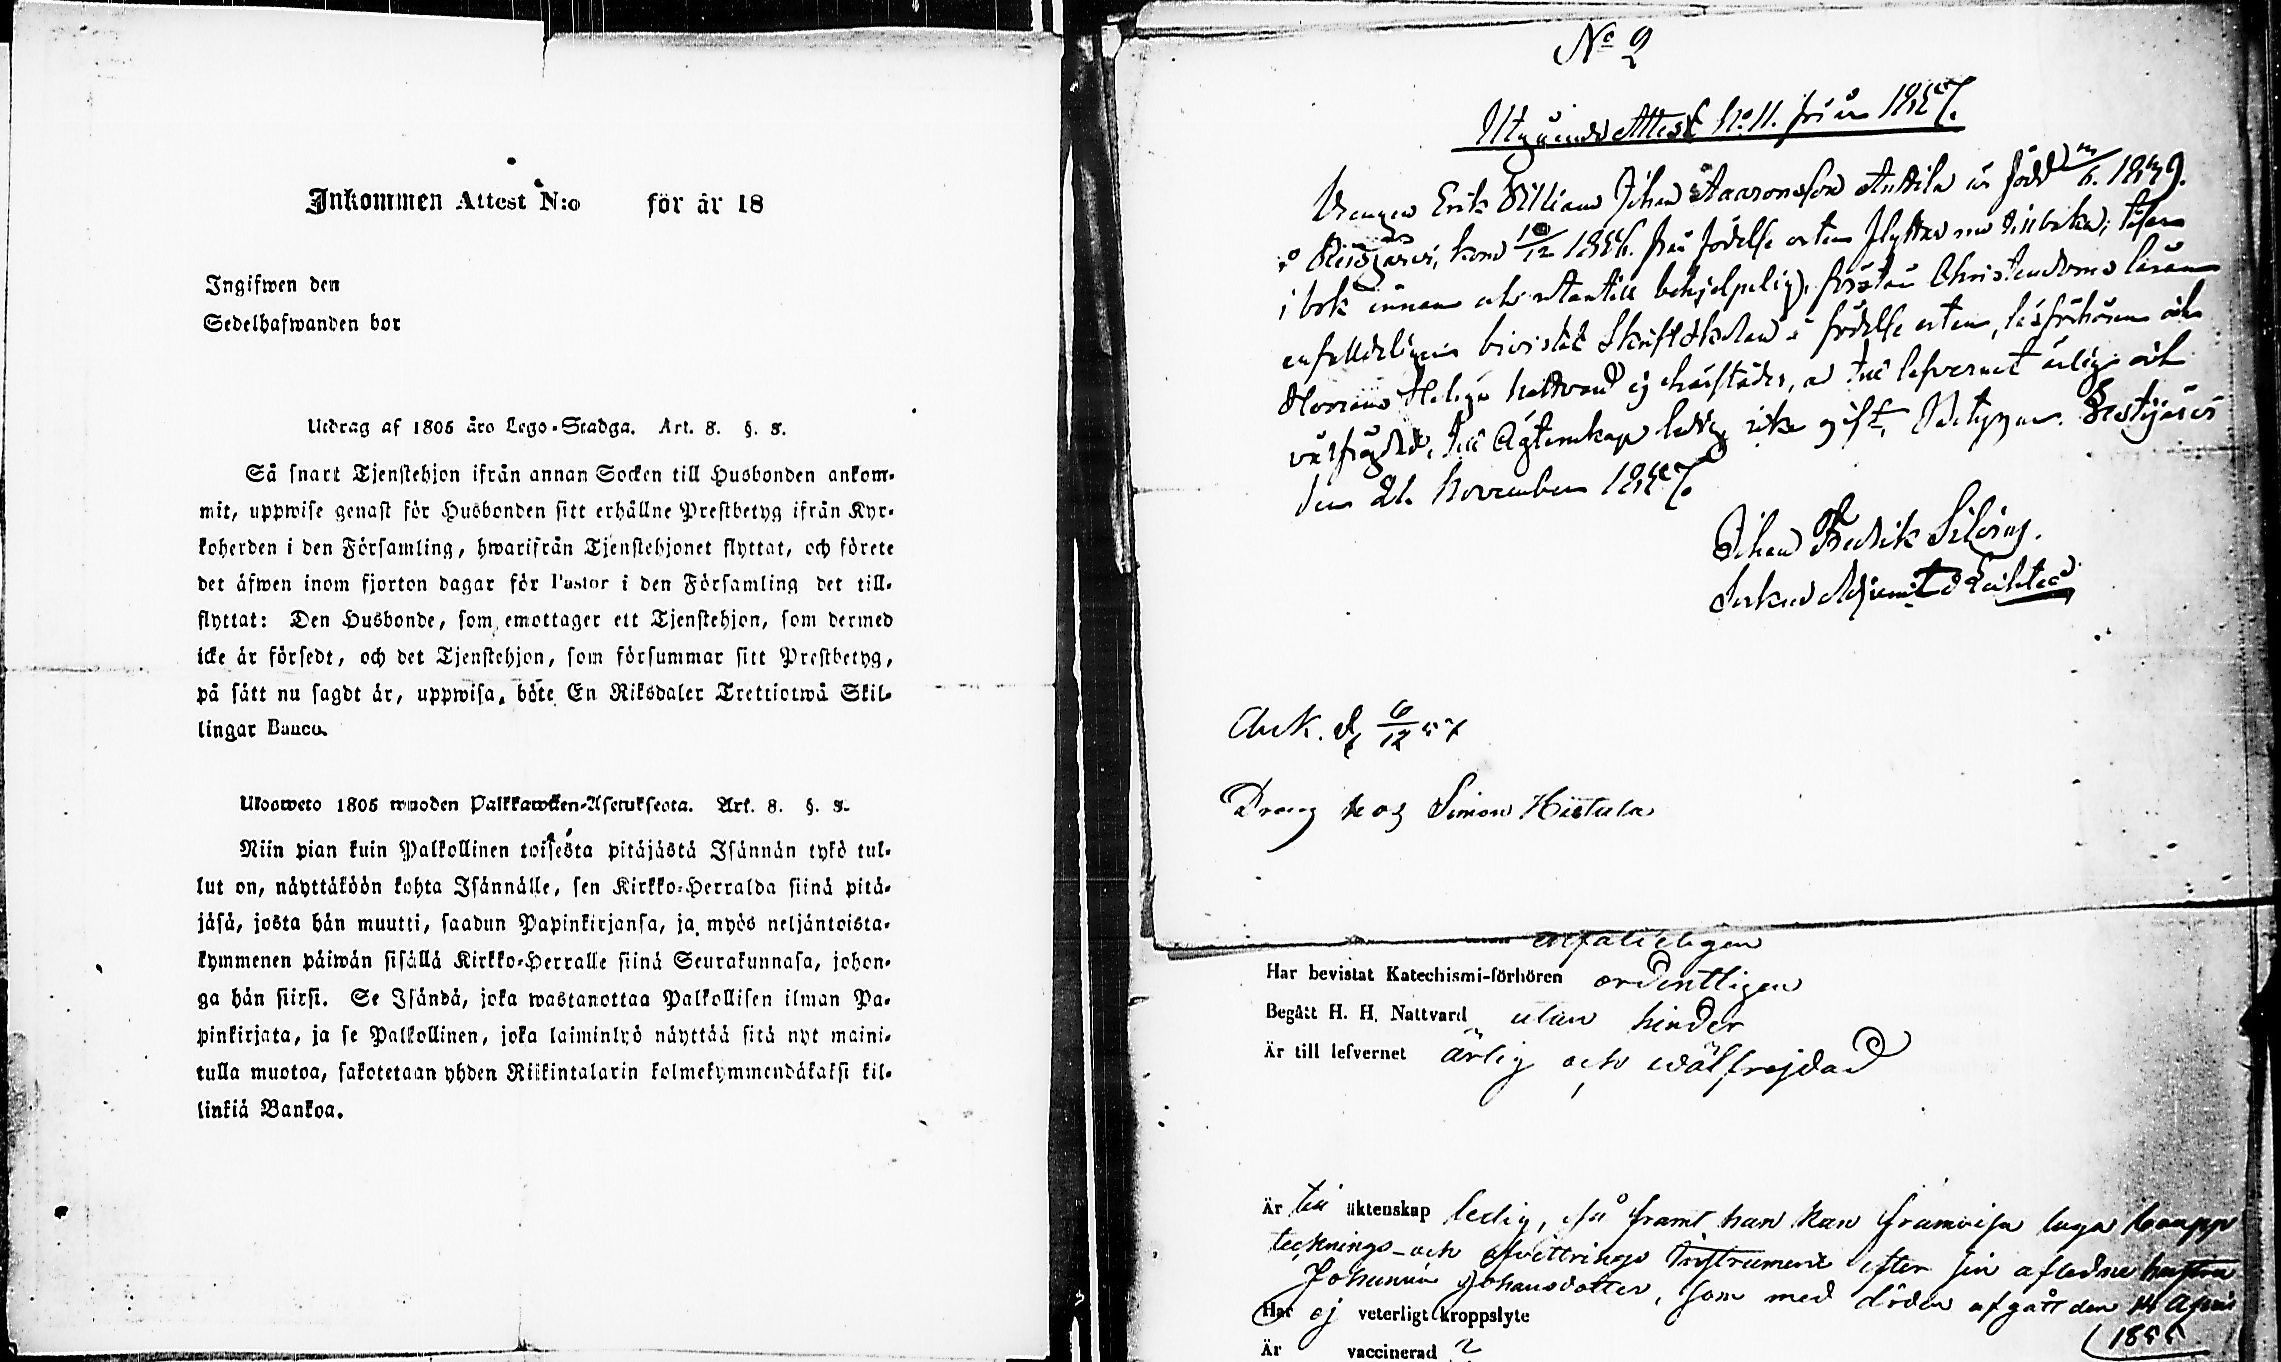 Inkommen Attest N:o för år 18
Ingifwen den
Sedelhafwanden bor
Utdrag af 1805 års Lego-Stadga. Art. 8. §. 8.
Så snart Tjenstehjon ifrån annan Socken till Husbonden ankom-
mit, uppwise genast för Husbonden sitt erhållne Prestbetyg ifrån Kyr-
koherden i den Församling, hwarifrån Tjenstehjonet flyttat, och förete
det äfwen inom fjorton dagar för Pastor i den Församling det till-
flyttat: Den Husbonde, som emottager ett Tjenstehjon, som dermed
icke är försedt, och det Tjenstehjon, som försummar sitt Prestbetyg,
på sätt nu sagdt är, uppwisa, böte En Riksdaler Trettiotwå Skil-
lingar Banco.
Ulosweto 1805 wuoden Palkkawäen-Asetuksesta. Art. 8. §. 8.
Niin pian kuin Palkollinen toisesta pitäjästä Isännän tykö tul-
lut on, näyttäköön kohta Isännälle, sen Kirkko-Herralda siinä pitä-
jäsä, josta hän muutti, saadun Papinkirjansa, ja myös neljäntoista-
kymmenen päiwän sisällä Kirkko-Herralle siinä Seurakunnasa, johon-
ga hän siirsi. Se Isändä, joka wastanottaa Palkollisen ilman Pa-
pinkirjata, ja se Palkollinen, joka laiminlyö näyttää sitä nyt maini-
tulla muotoa, sakotetaan yhden Riikintalarin kolmekymmendäkaksi kil-
linkiä Bankoa.
No 9
Utgående Attest No 11. för år 1857.
Drengen Erik Villiam Johan Aaronsson Anttila är född 6. 1839.
i Reisjärvi, kom 12 1856. från födelse orten flyttar nu tillbaka; läser
i bok innan och utantill behjelpelig, förstår Christendoms läran
enfalldeligen bivistat Skriftskolan i födelse orten, läsförhören och
Herrans Heliga Nattvard ej härstädes, är till lefvernet ärlig och
välfrägdad, till Ägtenskap ledig icke gift, Betygar. Pestijärvi
den 21 November 1857.
Johan Fredrik
Ank. d. 6/12 57
Dreng hos Simon Hietala
enfalldeligen
Har bevistat Katechismi-förhören ordentligen
Begått H. H. Nattvard utan hinder
Är till lefvernet ärlig och wälfrejdad
Är till äktenskap ledig, så framt han kan framvisa laga bouppe
tecknings- och afvittrings Instrument efter sin aflednе hustru
Johanna Johansdotter, som med döden afgått den 14 April
1855
Har ej veterligt kroppslyte
Är vaccinerad ?